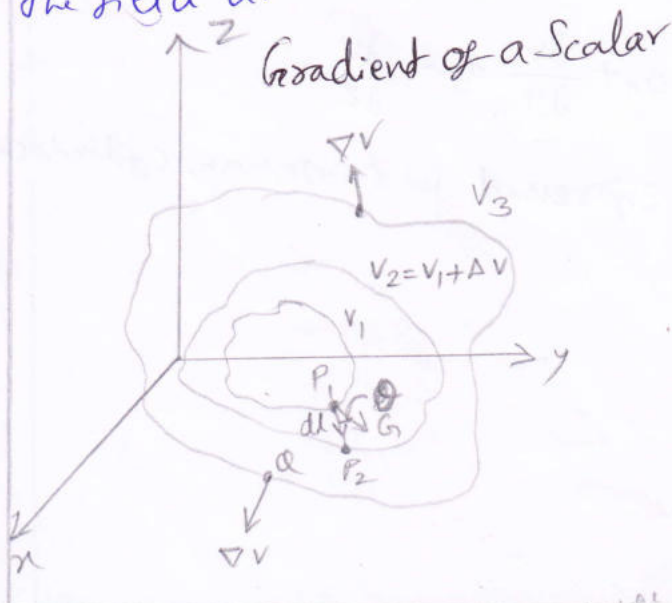 The field
Z
Gradient of a Scalar
∇V
V3
V2=V1+ΔV
V1
y
P1
θ
dl
G
Q
P2
∇V
x